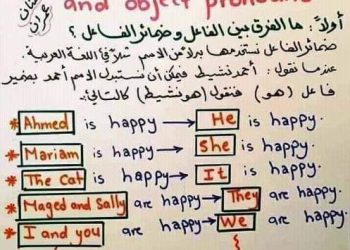 and object pronouns
أولاً: ما الفرق بين الفاعل وضمائر الفاعل؟
ضمائر الفاعل نستخدمها بدلا من الاسم مثلا في اللغة العربية
عندما نقول: أحمد نشيط فيمكن أن نستبدل الاسم أحمد بضمير
فاعل (هو) فنقول (هو نشيط) كالتالي:
* Ahmed is happy → He is happy.
* Mariam is happy → she is happy.
* The Cat is happy → It is happy.
* Maged and Sally are happy → They are happy.
* I and you are happy → We are happy.